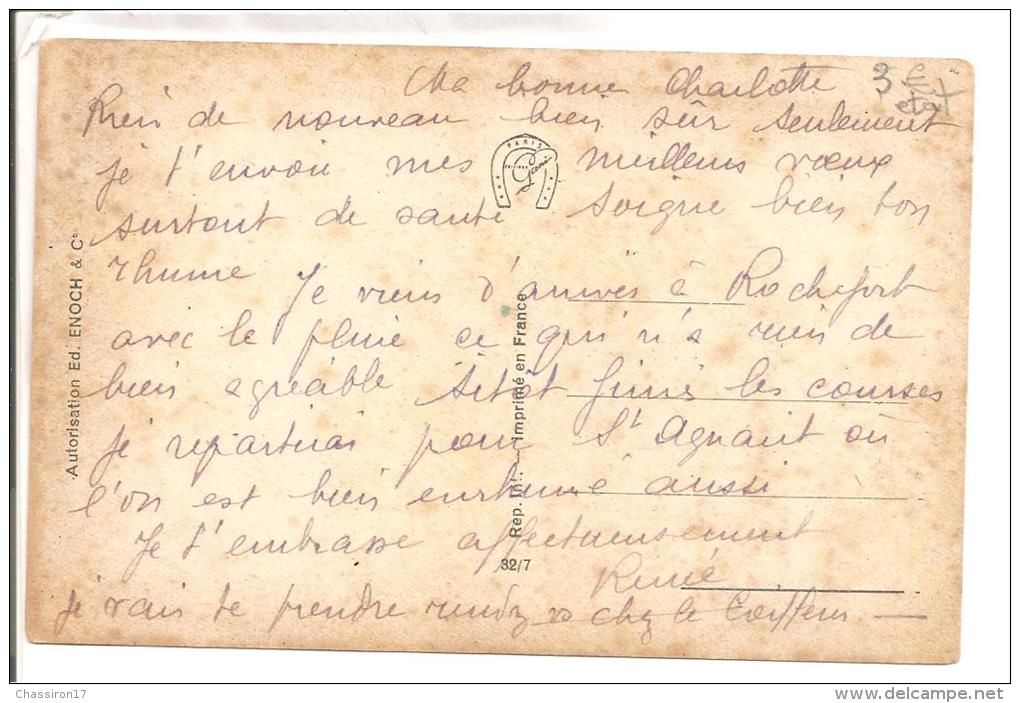 Ma bonne Charlotte
3
Rien de nouveau bien sûr seulement
je t'envoie mes meilleurs voeux
surtout de santé Soigne bien ton
rhume Je viens d'arrivés à Rochefort
avec le pluie ce qui n'a rien de
bien agréable sitôt finis les courses
je repartirai pour St Agnant où
l'on est bien enrhumé aussi
Je t'embrasse affectueusement
René
je vais te prendre rendez vo chez le Coiffeur
PARIS
Autorisation Ed. ENOCH & Co
Rep. Int. — Imprimé en France
32/7
Chassiron17
http://www.delcampe.net